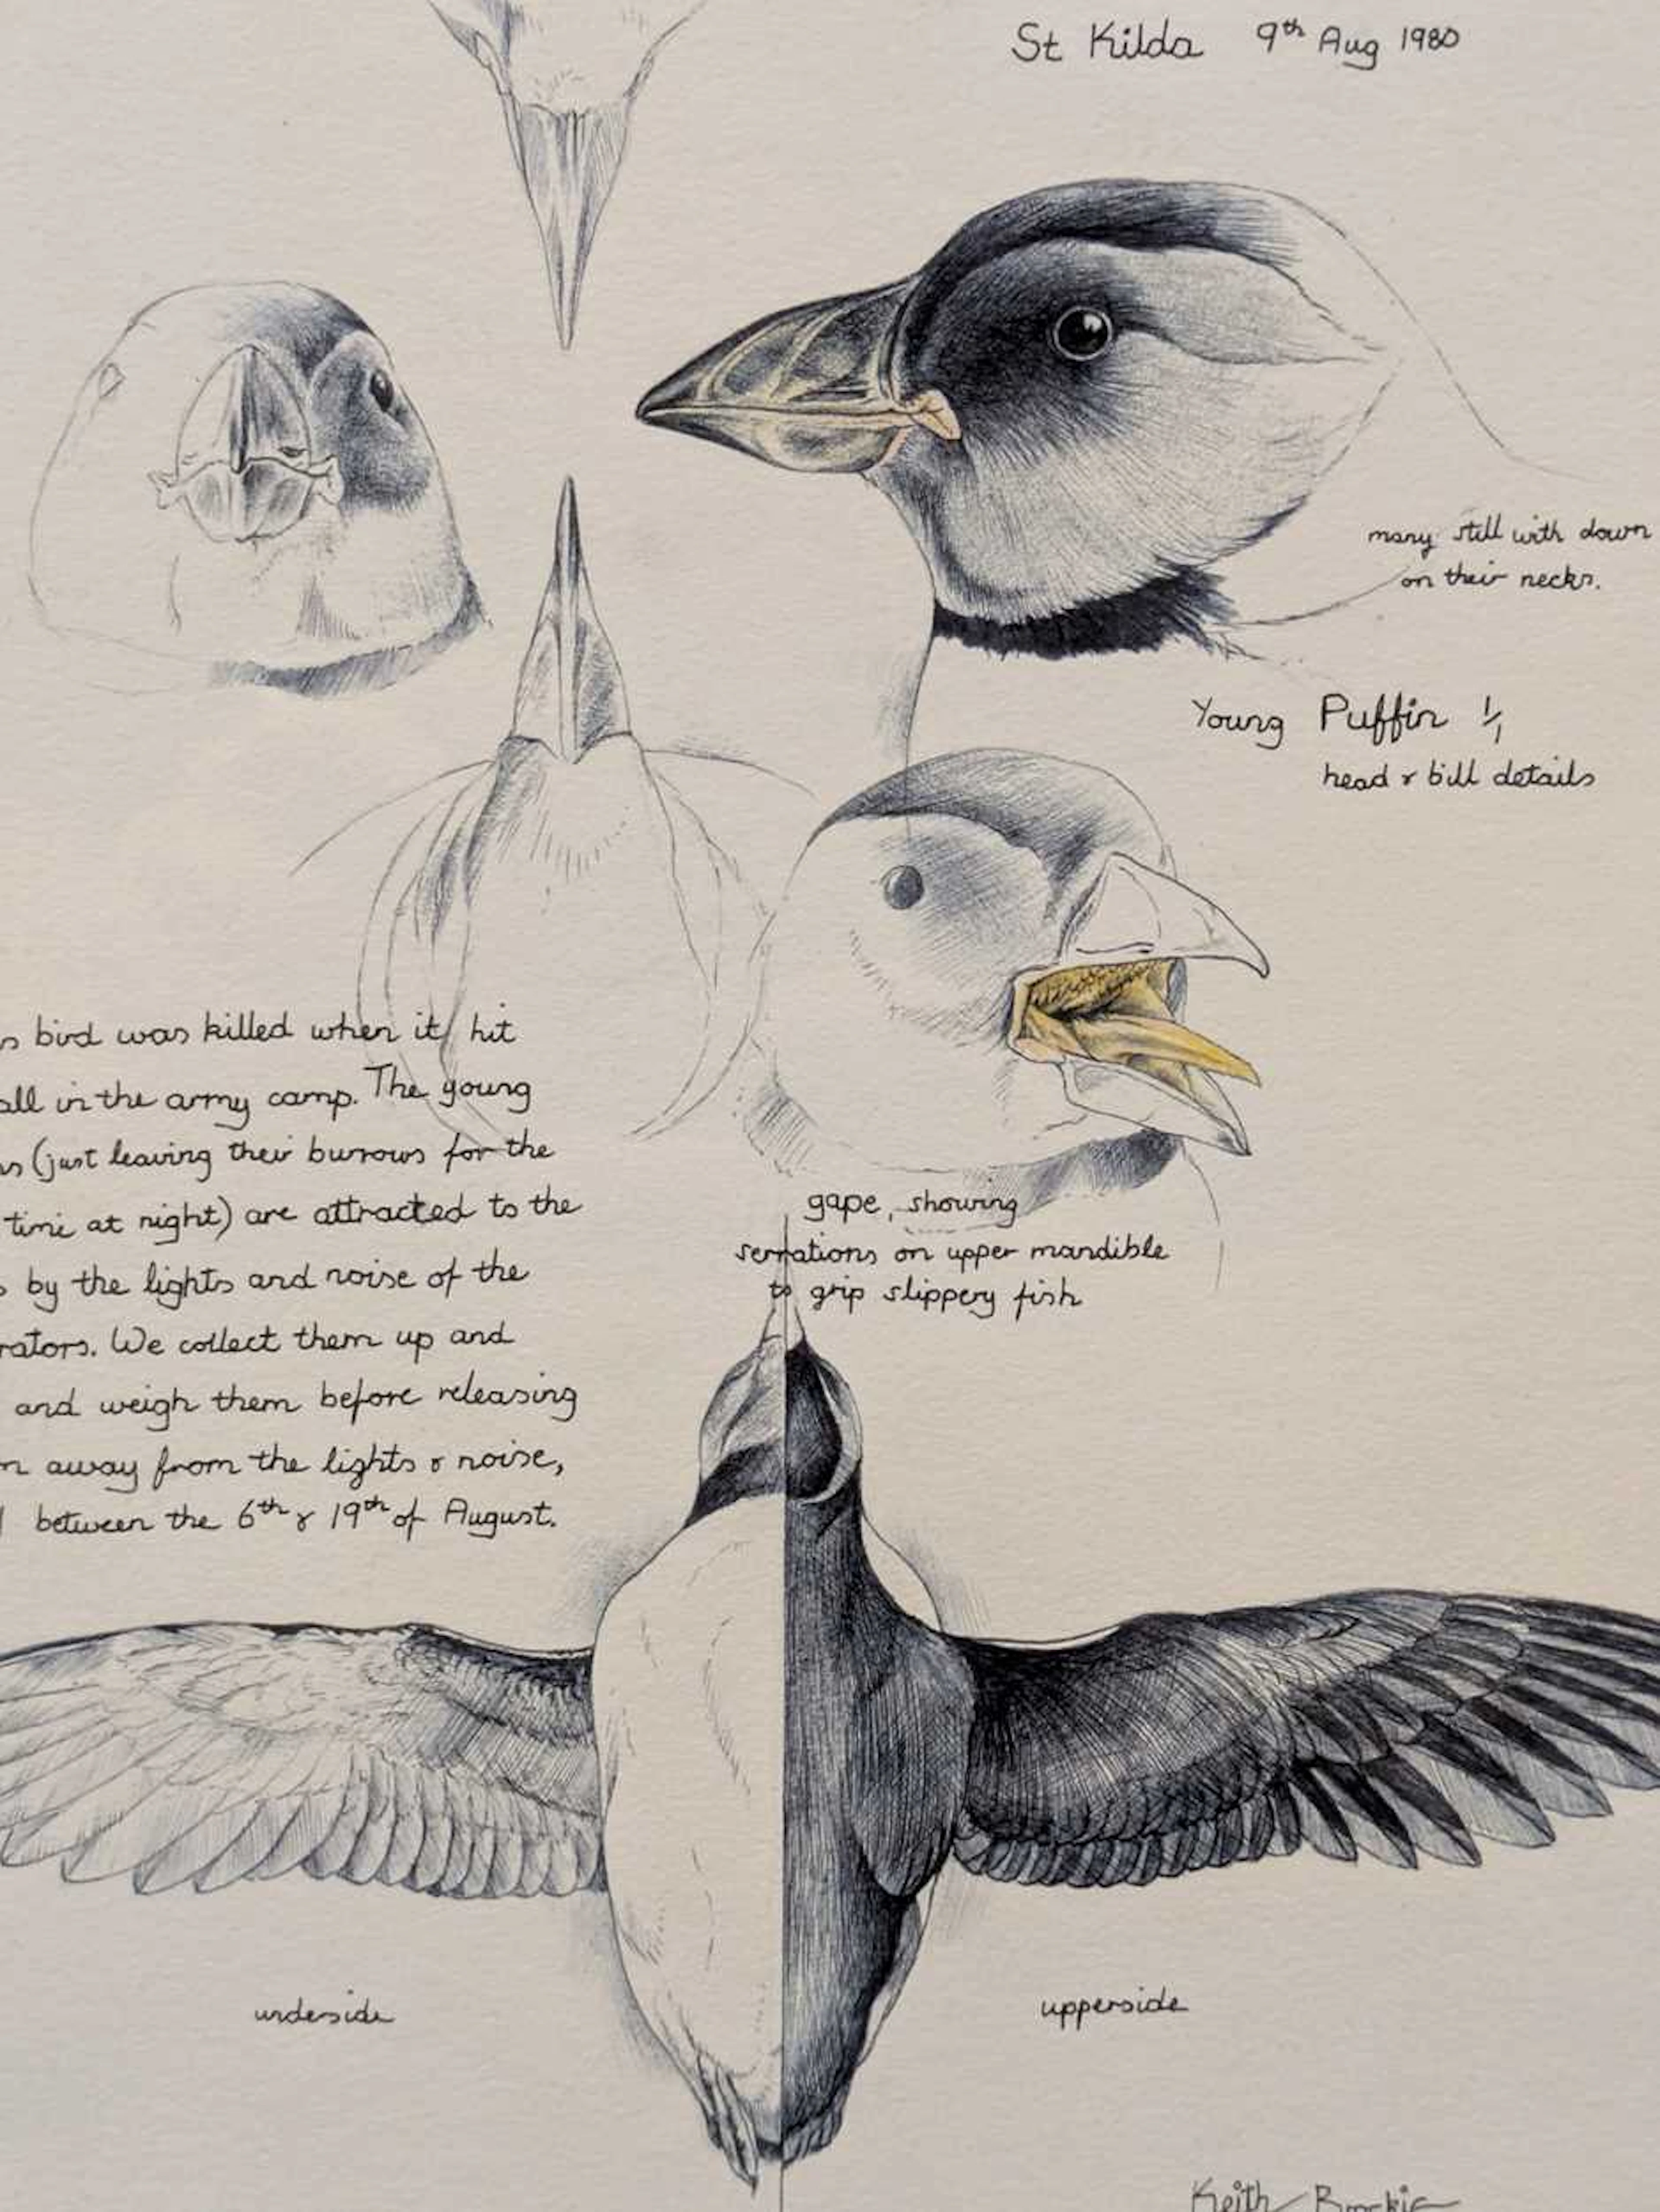 St Kilda 9th Aug 1980
many still with down
on their necks.
Young Puffin 1/1
head & bill details
s bird was killed when it hit
all in the army camp. The young
ns (just leaving their burrows for the
time at night) are attracted to the
s by the lights and noise of the
rators. We collect them up and
and weigh them before releasing
m away from the lights & noise,
between the 6th & 19th of August.
gape, showing
serrations on upper mandible
to grip slippery fish
underside
upperside
Keith Brockie